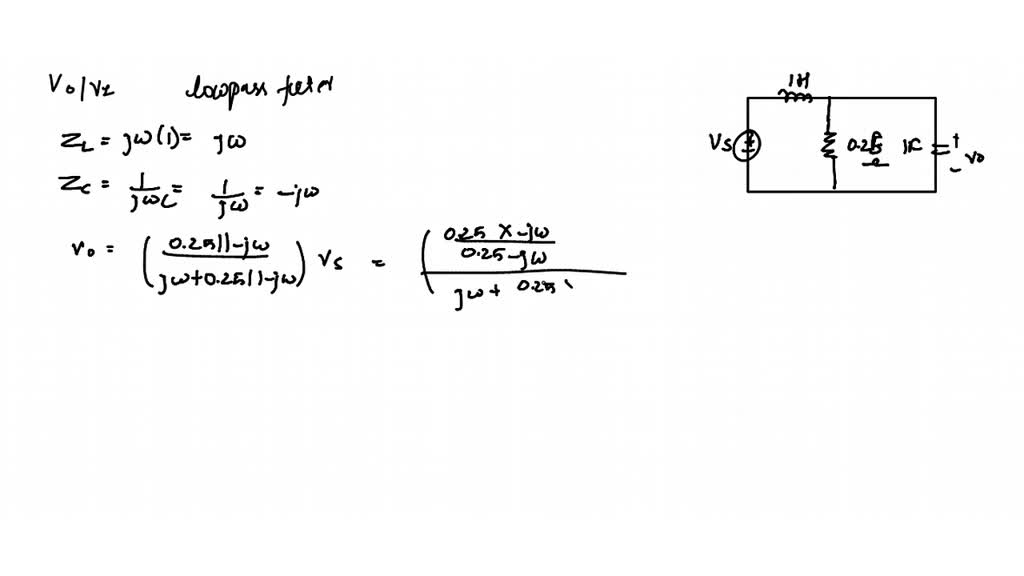 Vo/Vs lowpass filter
ZL = jω(1) = jω
Zc = 1/jωC = 1/jω = -jω
vo = (0.25||-jω / jω+0.25||-jω) Vs = (0.25 X -jω / 0.25-jω / jω + 0.25
1H
Vs
0.25
1F
+
-
vo